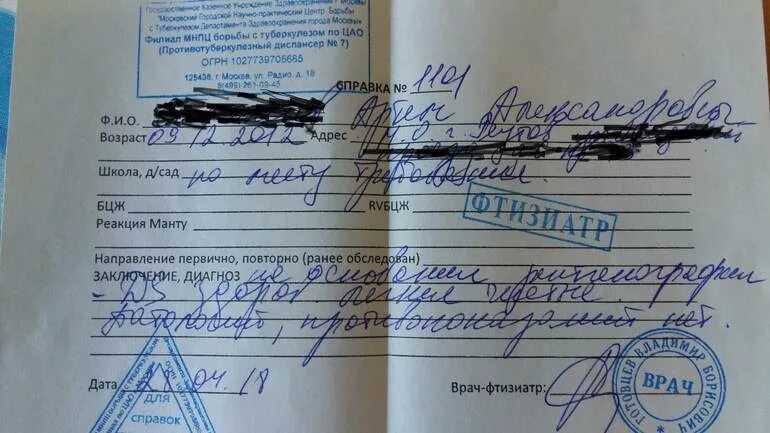 Государственное Казенное Учреждение Здравоохранения г. Москвы
"Московский Городской Научно-практический Центр Борьбы
с Туберкулезом Департамента Здравоохранения города Москвы"
Филиал МНПЦ борьбы с туберкулезом по ЦАО
(Противотуберкулезный диспансер № 7)
ОГРН 1027739705665
г. Москва, ул. Радио, д. 18
СПРАВКА № 1101
Ф.И.О. Артем Александрович
Возраст 09.12.2012 Адрес М.О. г. Реутов
Школа, д/сад по месту требования.
БЦЖ RVБЦЖ
ФТИЗИАТР
Реакция Манту
Направление первично, повторно (ранее обследован)
ЗАКЛЮЧЕНИЕ, ДИАГНОЗ на основании рентгенографии
- DS здоров. легких
Патологий, противопоказаний нет.
Дата 28.04.18 Врач-фтизиатр:
для
справок
ГОТОВЦЕВ ВЛАДИМИР БОРИСОВИЧ
ВРАЧ